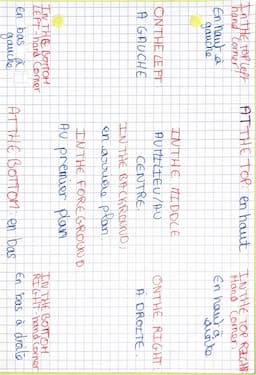 IN THE TOP LEFT
hand Corner:
En haut à
gauche
AT THE TOP: en haut
IN THE TOP RIGHT
Hand Corner:
En haut à
droite
ON THE LEFT
À GAUCHE
IN THE MIDDLE
AU MILIEU/AU
CENTRE.
IN THE BACKGROUND:
en arrière plan
IN THE FOREGROUND
Au premier plan
ON THE RIGHT:
À DROITE.
IN THE BOTTOM
LEFT-hand Corner
En bas à
gauche
AT THE BOTTOM en bas
IN THE BOTTOM
RIGHT-hand Corner
En bas à droite